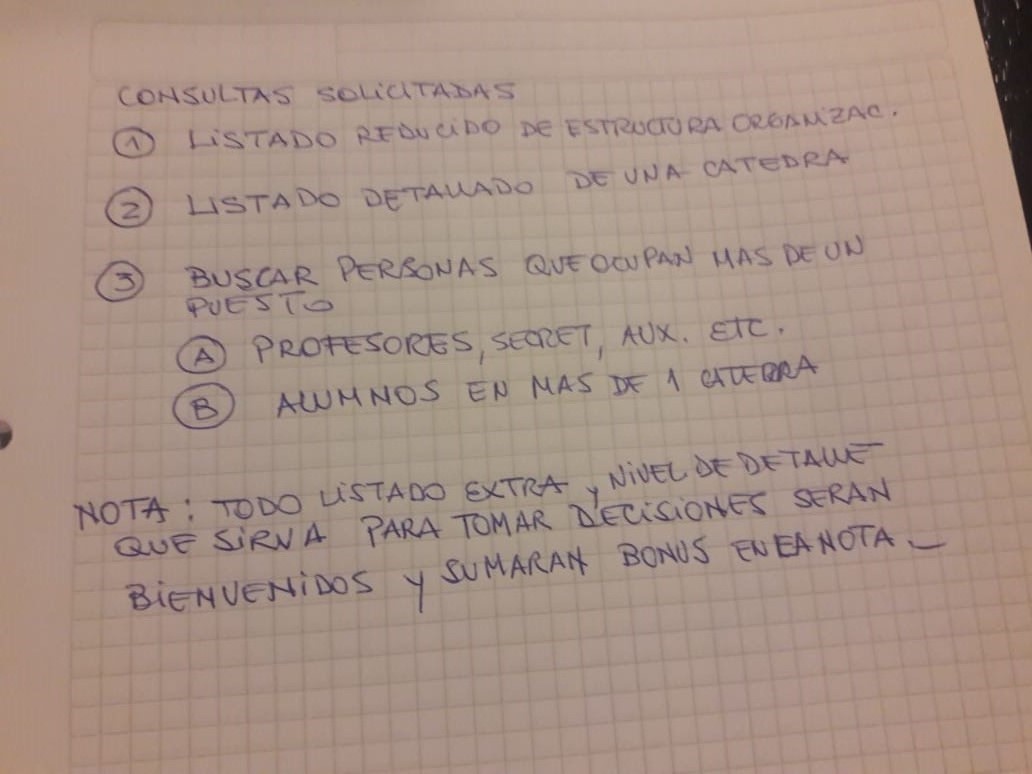 CONSULTAS SOLICITADAS
1 LISTADO REDUCIDO DE ESTRUCTURA ORGANIZAC.
2 LISTADO DETALLADO DE UNA CATEDRA
3 BUSCAR PERSONAS QUE OCUPAN MAS DE UN
PUESTO
A PROFESORES, SECRET, AUX. ETC.
B ALUMNOS EN MAS DE 1 CATEDRA
NOTA: TODO LISTADO EXTRA y NIVEL DE DETALLE
QUE SIRVA PARA TOMAR DECISIONES SERAN
BIENVENIDOS y SUMARAN BONUS EN LA NOTA.